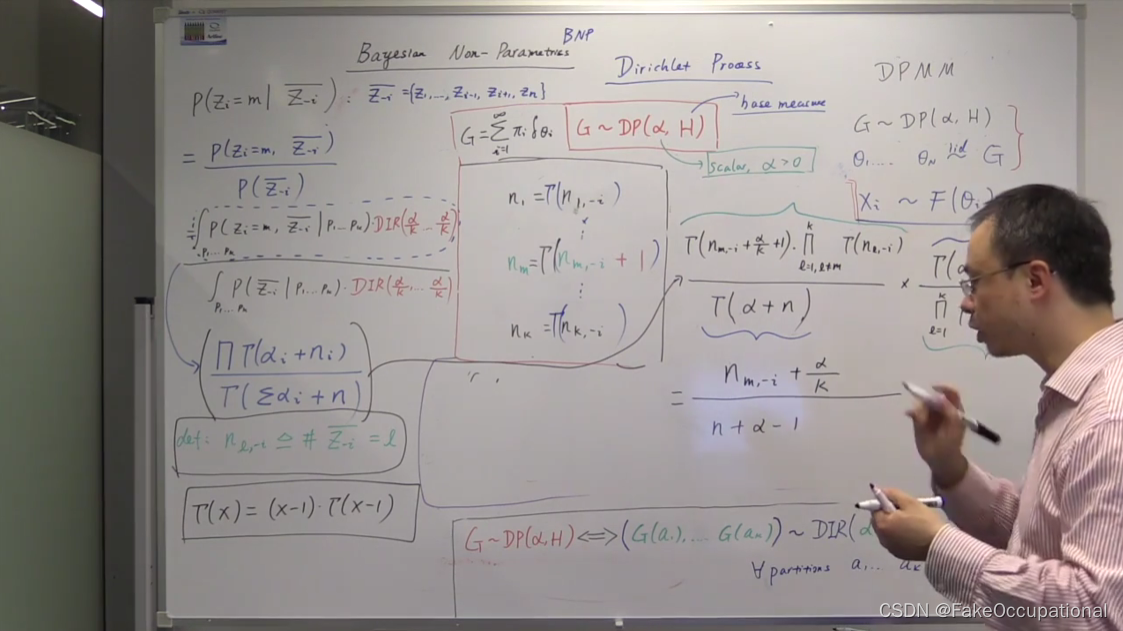 Bayesian Non-Parametrics
BNP
Dirichlet Process
DPMM
P(Zi=m | Z-i) : Z-i = {Z1,..., Zi-1, Zi+1, Zn}
= P(Zi=m, Z-i)
P(Z-i)
∫ P(Zi=m, Z-i | P1...Pn)·DIR(α/k ... α/k)
P1...Pn
∫ P(Z-i | P1...Pn)·DIR(α/k, ... α/k)
P1...Pn
(∏ Γ(αi+ni)
Γ(Σαi+n))
def: nℓ,-i ≜ # Z-i = ℓ
Γ(x) = (x-1)·Γ(x-1)
G = Σ i=1 ∞ πi δθi
G ~ DP(α, H)
base measure
scalar, α>0
n1 = Γ(n1,-i)
⋮
nm = Γ(nm,-i + 1)
⋮
nk = Γ(nk,-i)
G ~ DP(α, H)
θ1.... θN iid ~ G
Xi ~ F(θi)
Γ(nm,-i + α/k + 1) · ∏ ℓ=1,ℓ≠m k Γ(nℓ,-i)
Γ(α+n)
×
∏ ℓ=1 k
= nm,-i + α/k
n + α - 1
G~DP(α,H) ⟺ (G(a1),... G(an)) ~ DIR(α
∀ partitions a1... ak
CSDN @FakeOccupational